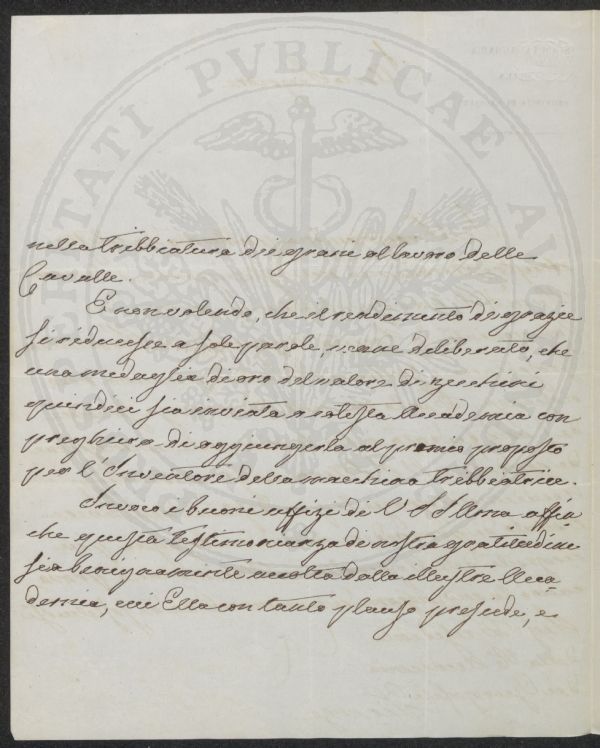 PROSPERITATI PVBLICAE AVGENDAE
nella trebbiatura dei grani al lavoro delle
Cavalle.
E non volendo, che il rendimento di grazie
si riducesse a sole parole, venne deliberato, che
una medaglia di oro del valore di zecchini
quindici sia inviata a cotesta Accademia con
preghiera di aggiungerla al premio proposto
per l'Inventore della macchina trebbiatrice.
Invoco i buoni uffizi di V. S. Illma affin
che questa testimonianza di nostra gratitudine
sia benignamente accolta dalla illustre Acca-
demia, cui Ella con tanto plauso presiede, e